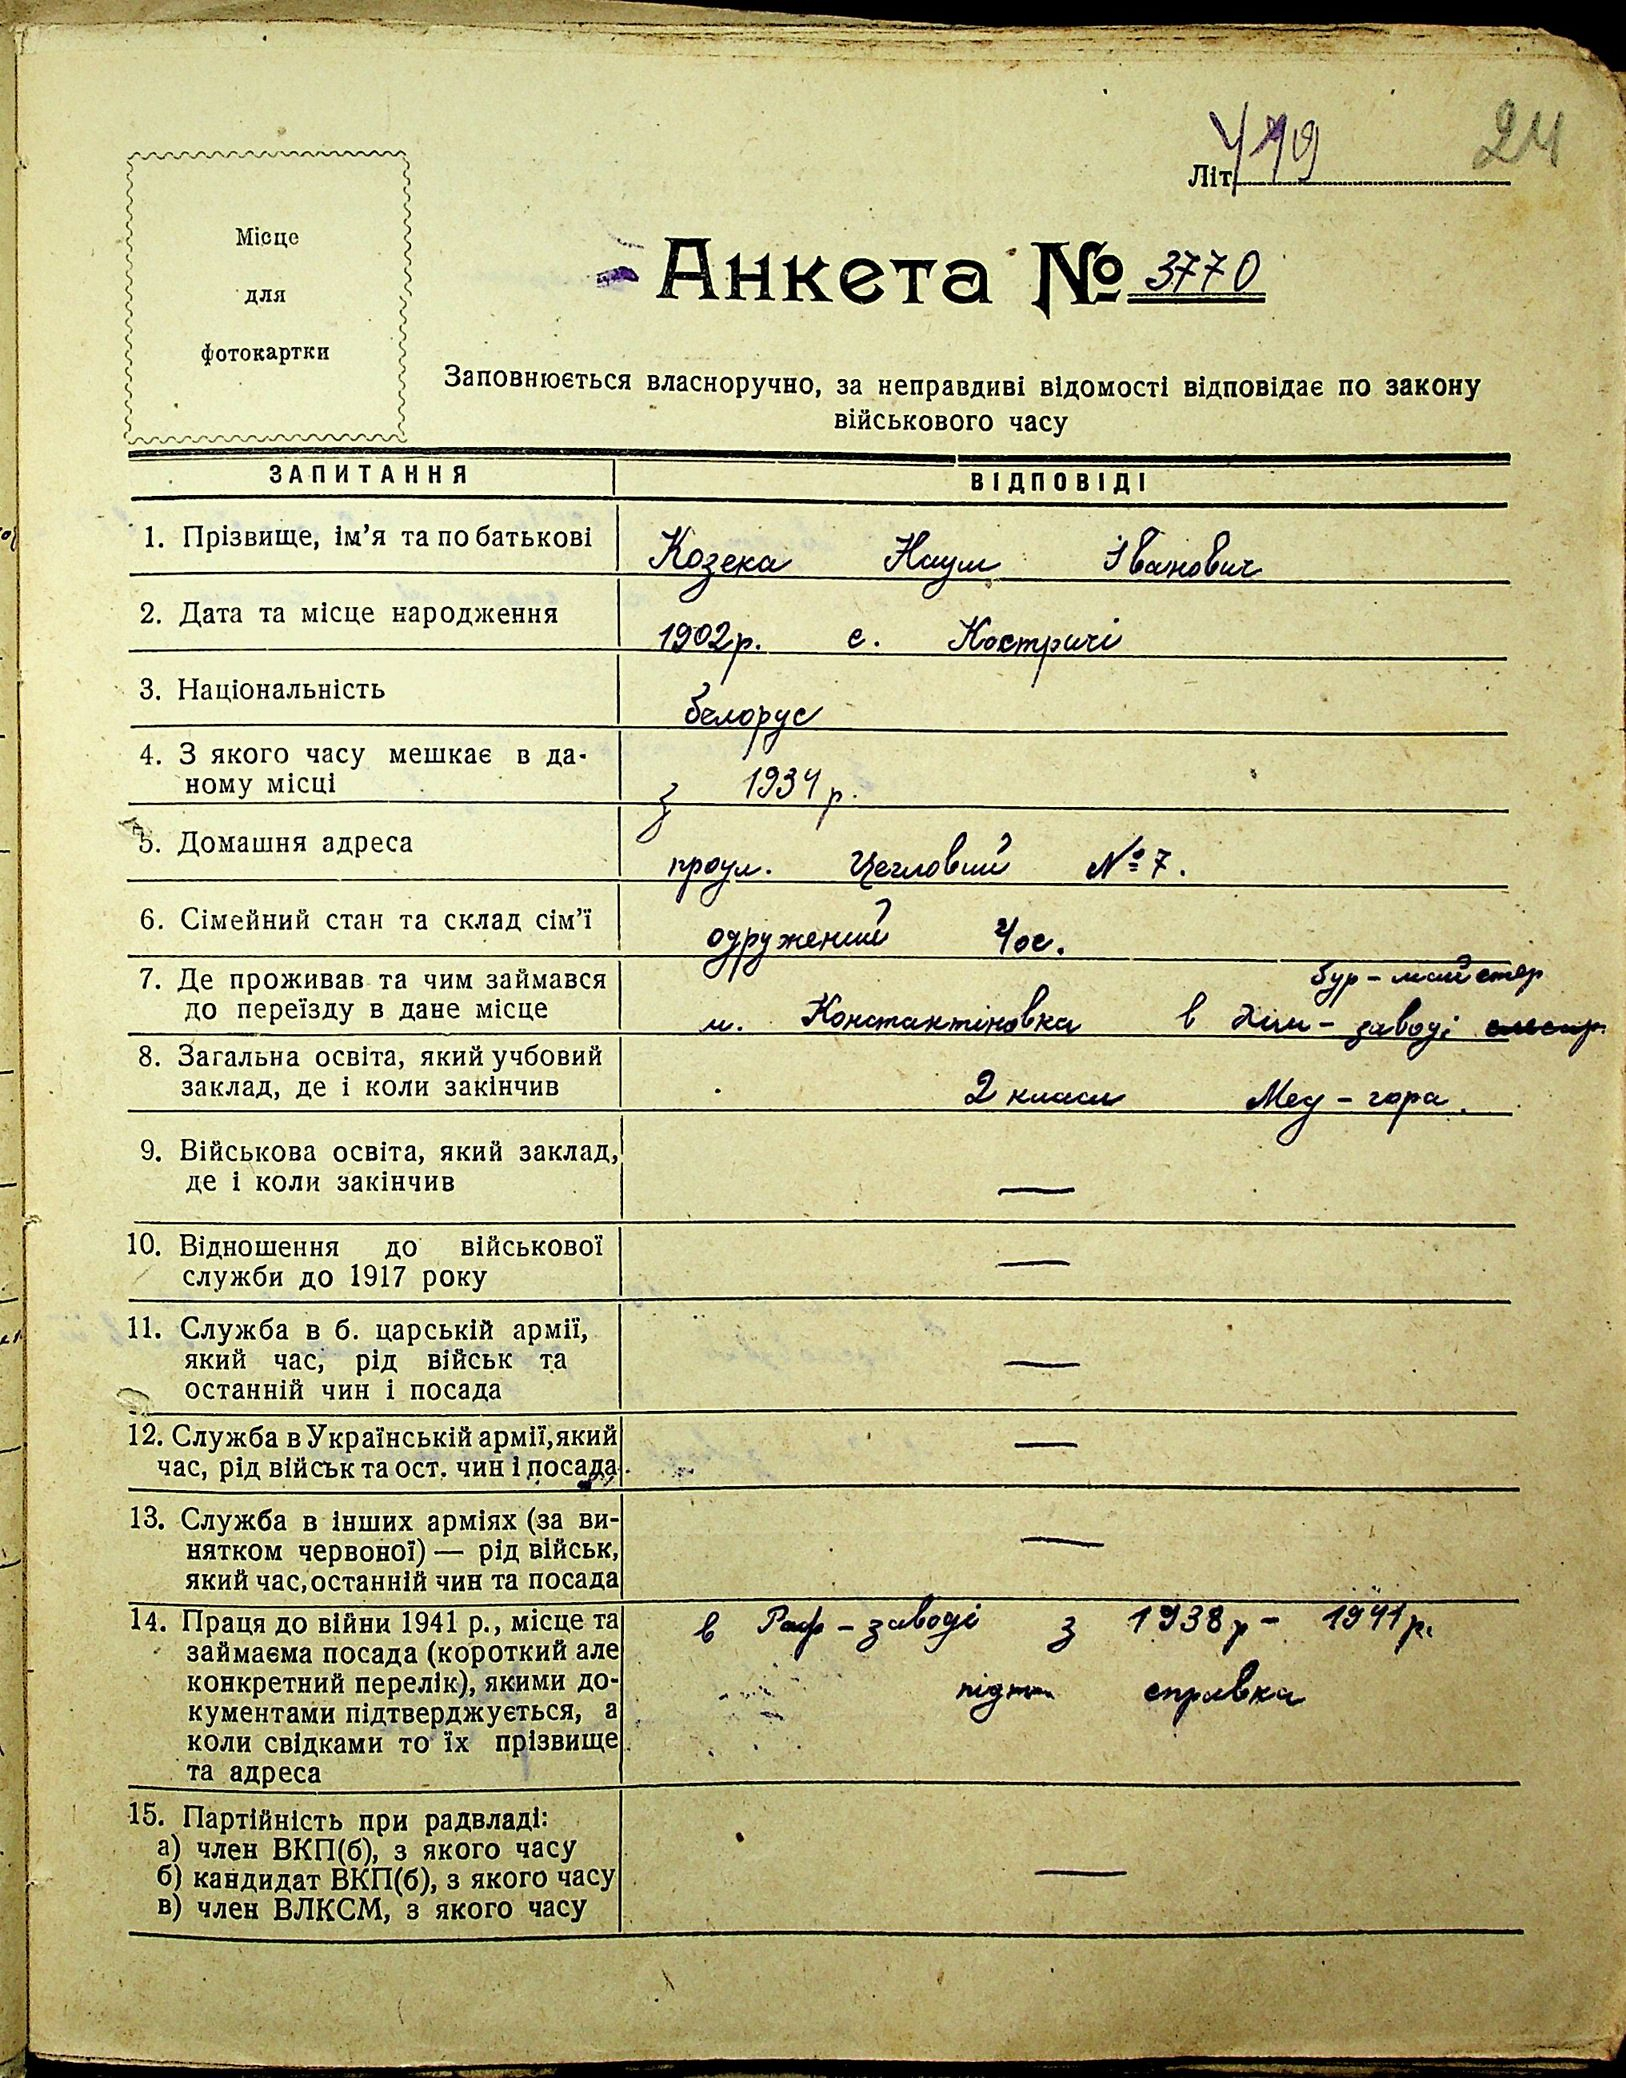 24
Літ. 419
Місце
для
фотокартки
Анкета № 3770
Заповнюється власноручно, за неправдиві відомості відповідає по закону
військового часу
ЗАПИТАННЯ ВІДПОВІДІ
1. Прізвище, ім’я та по батькові Козека Наум Іванович
2. Дата та місце народження 1902р. с. Костричі
3. Національність белорус
4. З якого часу мешкає в да-
ному місці з 1934 р.
5. Домашня адреса проул. Цегловий № 7.
6. Сімейний стан та склад сім’ї одружений 4 ос.
7. Де проживав та чим займався бур-майстер
до переїзду в дане місце м. Константіновка в Хім-заводі
8. Загальна освіта, який учбовий
заклад, де і коли закінчив 2 класи Мед-гора.
9. Військова освіта, який заклад,
де і коли закінчив —
10. Відношення до військової
служби до 1917 року —
11. Служба в б. царській армії,
який час, рід військ та —
останній чин і посада
12. Служба в Українській армії, який —
час, рід військ та ост. чин і посада
13. Служба в інших арміях (за ви-
нятком червоної) — рід військ, —
який час, останній чин та посада
14. Праця до війни 1941 р., місце та в Раф-заводі з 1938р - 1941р.
займаєма посада (короткий але
конкретний перелік), якими до- справка
кументами підтверджується, а
коли свідками то їх прізвище
та адреса
15. Партійність при радвладі:
а) член ВКП(б), з якого часу
б) кандидат ВКП(б), з якого часу —
в) член ВЛКСМ, з якого часу